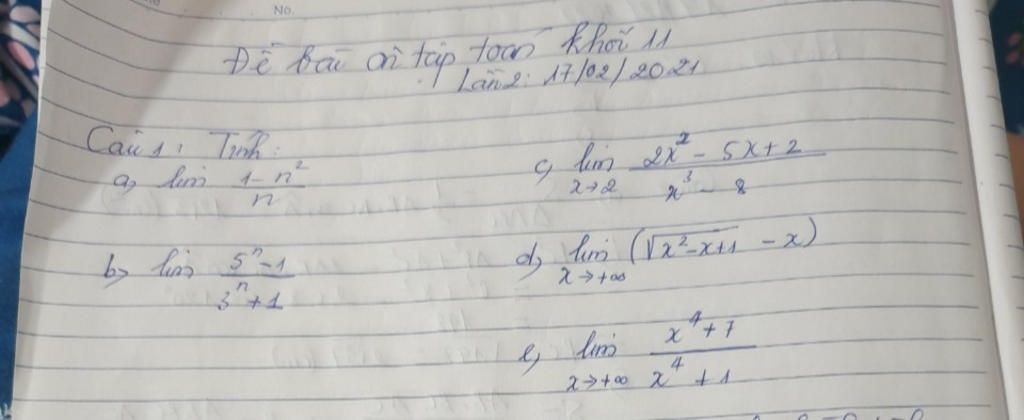 No.
Đề bài ôn tập toán khối 11
Lần 2: 17/02/2021
Câu 1: Tính:
a, lim (1 - n²)/n
b, lim (5ⁿ - 1)/(3ⁿ + 1)
c, lim x→2 (2x² - 5x + 2)/(x³ - 8)
d, lim x→+∞ (√(x² - x + 1) - x)
e, lim x→+∞ (x⁴ + 7)/(x⁴ + 1)